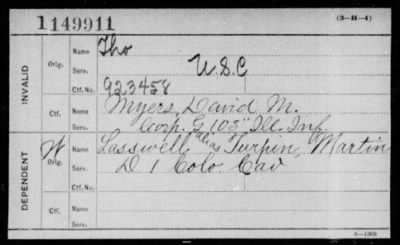 1149911
(3-H-4)
INVALID
Orig.
Name
Tho
Serv.
U.S.C
Ctf. No.
923458
Ctf.
Name
Myers, David M.
Serv.
Corp. G 103" Ill. Inf.
DEPENDENT
W
Orig.
Name
Lasswell alias Turpin, Martin
Serv.
D 1 Colo Cav
Ctf. No.
Ctf.
Name
Serv.